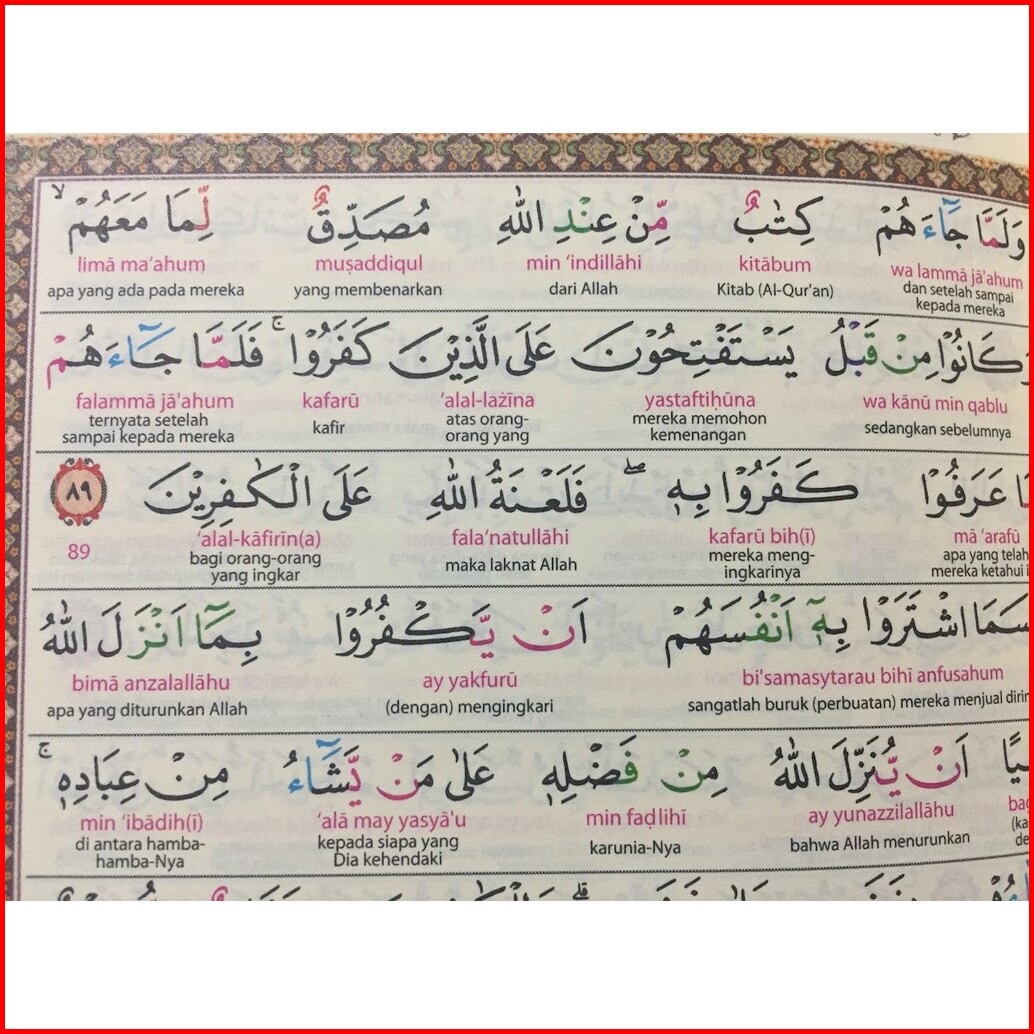 وَلَمَّا جَآءَهُمْ كِتٰبٌ مِّنْ عِنْدِ اللّٰهِ مُصَدِّقٌ لِّمَا مَعَهُمْۙ
wa lammā jā'ahum kitābum min ‘indillāhi muṣaddiqul limā ma‘ahum
dan setelah sampai kepada mereka Kitab (Al-Qur'an) dari Allah yang membenarkan apa yang ada pada mereka
وَكَانُوْا مِنْ قَبْلُ يَسْتَفْتِحُوْنَ عَلَى الَّذِيْنَ كَفَرُوْاۚ فَلَمَّا جَآءَهُمْ
wa kānū min qablu yastaftiḥūna ‘alal-lażīna kafarū falammā jā'ahum
sedangkan sebelumnya mereka memohon kemenangan atas orang-orang yang kafir ternyata setelah sampai kepada mereka
عَرَفُوْا كَفَرُوْا بِهٖۖ فَلَعْنَةُ اللّٰهِ عَلَى الْكٰفِرِيْنَ ٨٩
mā ‘arafū kafarū bih(ī) fala‘natullāhi ‘alal-kāfirīn(a) 89
apa yang telah mereka ketahui mereka meng-ingkarinya maka laknat Allah bagi orang-orang yang ingkar
اشْتَرَوْا بِهٖٓ اَنْفُسَهُمْ اَنْ يَّكْفُرُوْا بِمَآ اَنْزَلَ اللّٰهُ
bi'samasytarau bihī anfusahum ay yakfurū bimā anzalallāhu
sangatlah buruk (perbuatan) mereka menjual (dengan) mengingkari apa yang diturunkan Allah
اَنْ يُّنَزِّلَ اللّٰهُ مِنْ فَضْلِهٖ عَلٰى مَنْ يَّشَآءُ مِنْ عِبَادِهٖۚ
ay yunazzilallāhu min faḍlihī ‘alā may yasyā'u min ‘ibādih(ī)
bahwa Allah menurunkan karunia-Nya kepada siapa yang Dia kehendaki di antara hamba-hamba-Nya